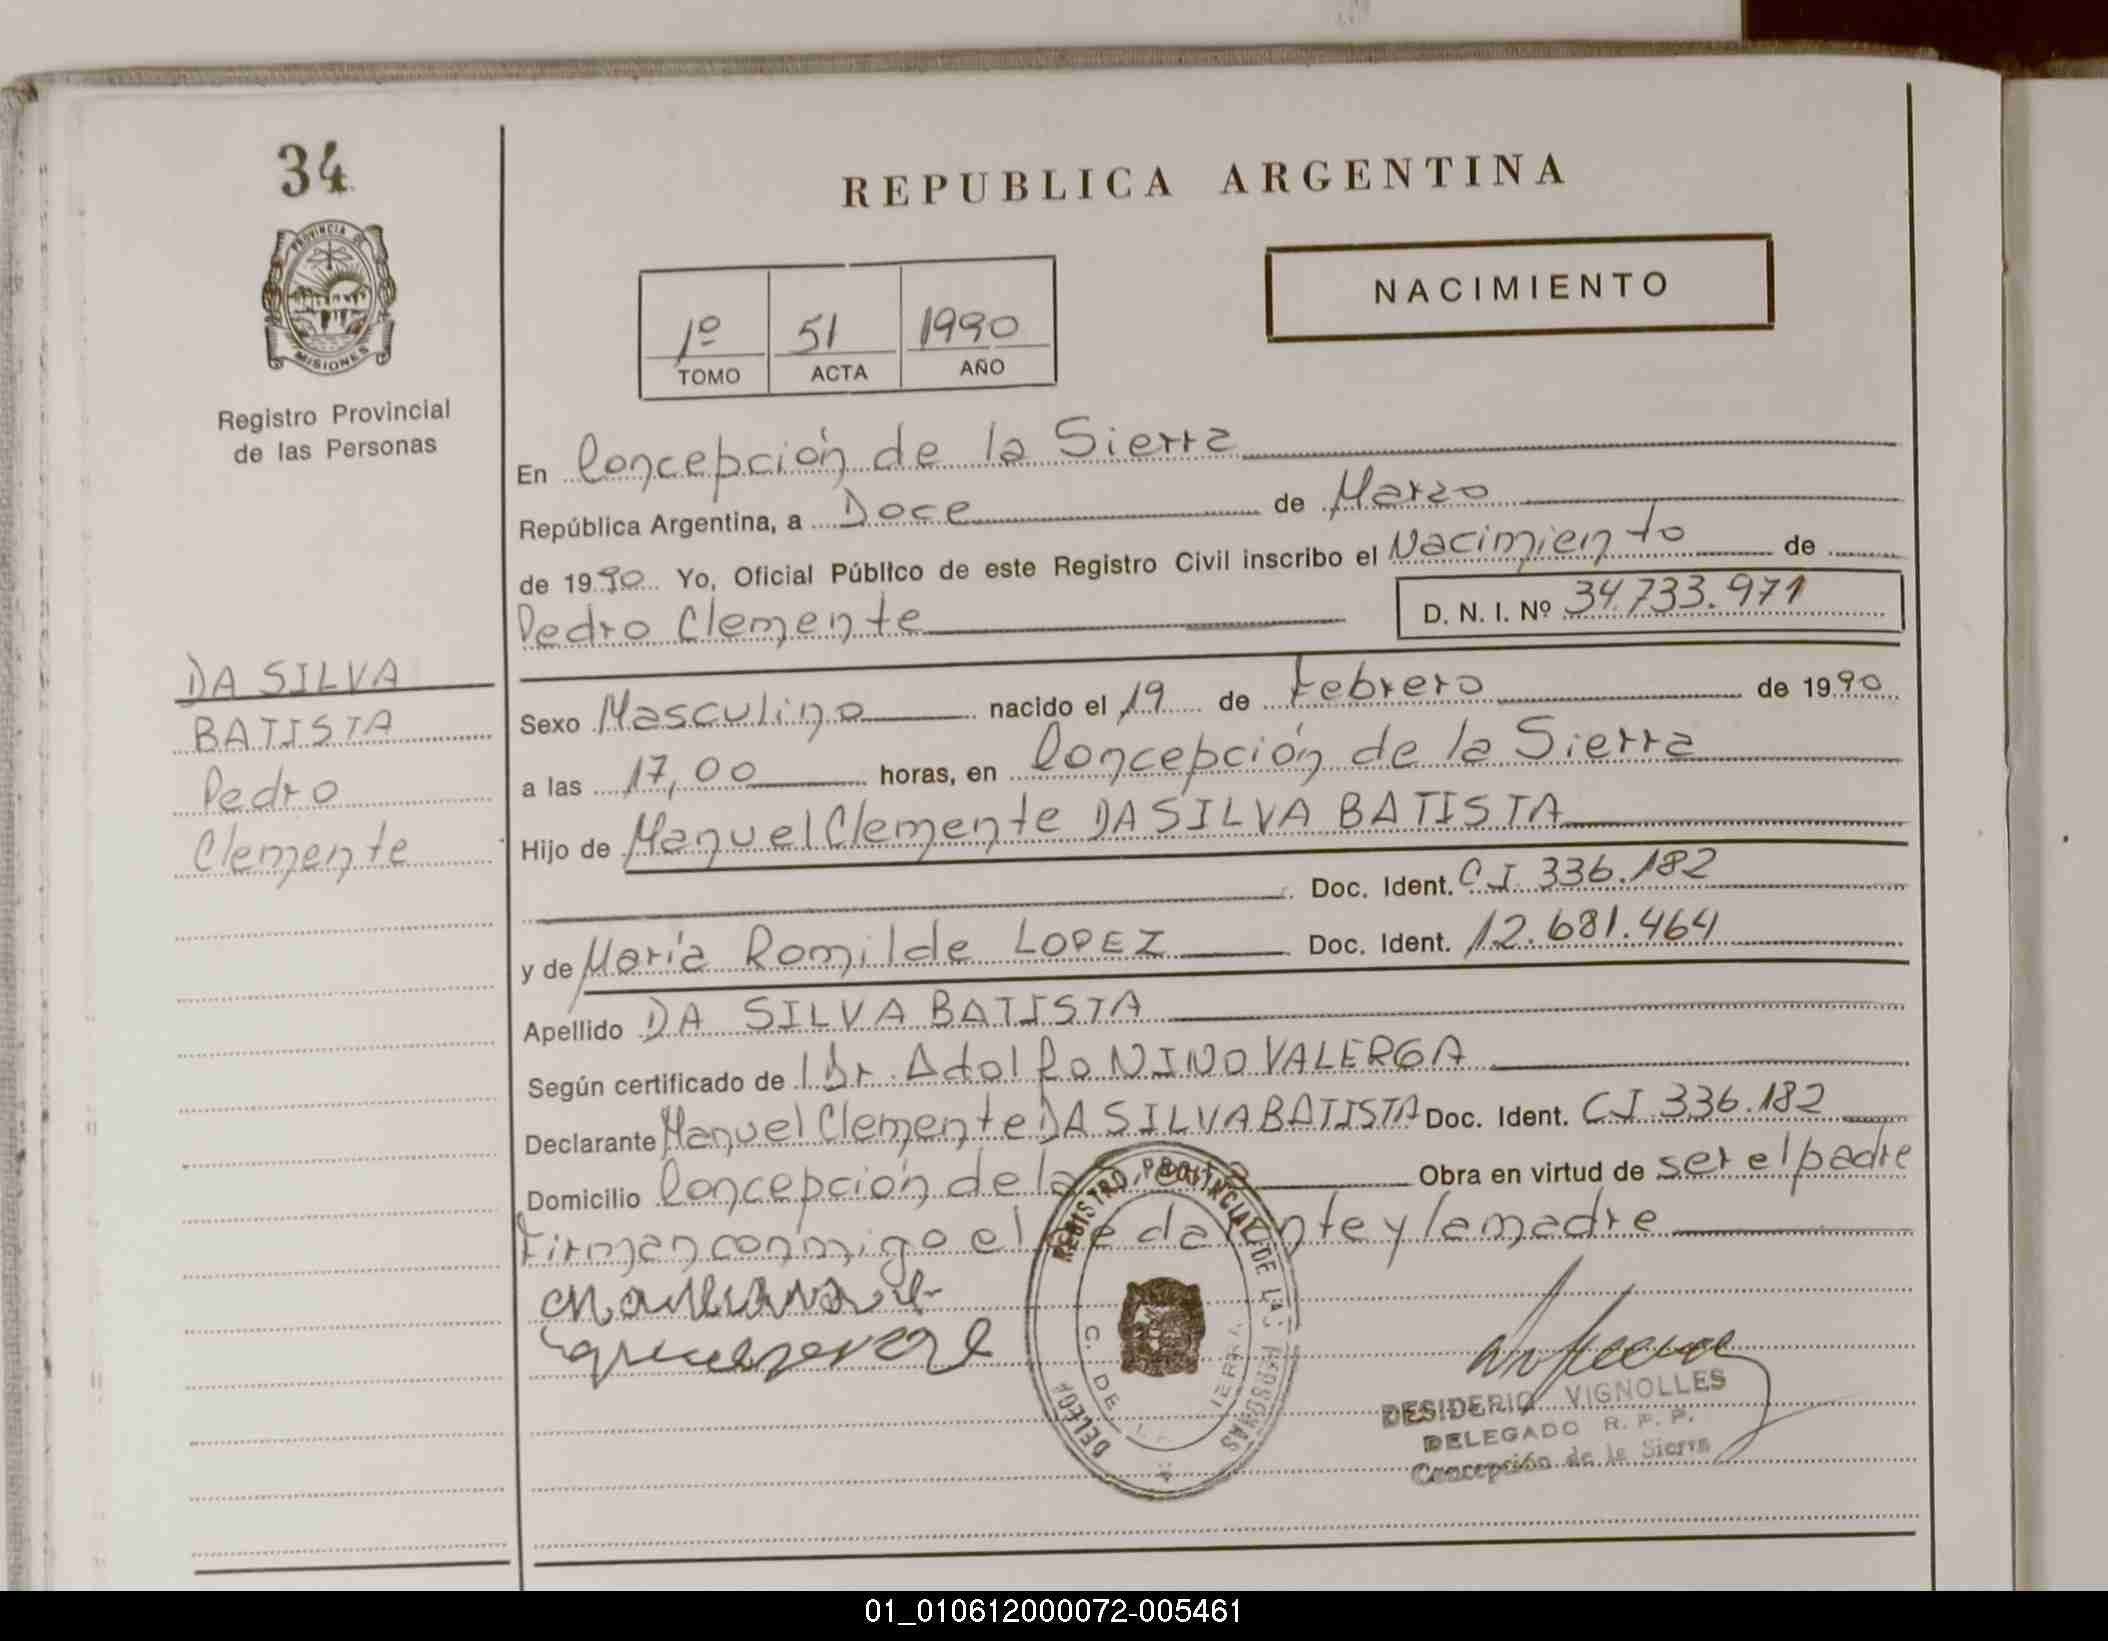 34
PROVINCIA DE
MISIONES
Registro Provincial
de las Personas
REPUBLICA ARGENTINA
NACIMIENTO
1º 51 1990
TOMO ACTA AÑO
En Concepción de la Sierra
República Argentina, a Doce de Marzo
de 1990 Yo, Oficial Público de este Registro Civil inscribo el Nacimiento de
Pedro Clemente D. N. I. Nº 34.733.971
DA SILVA
BATISTA
Pedro
Clemente
Sexo Masculino nacido el 19 de Febrero de 1990
a las 17,00 horas, en Concepción de la Sierra
Hijo de Manuel Clemente DA SILVA BATISTA
Doc. Ident. CI 336.182
y de María Romilde LOPEZ Doc. Ident. 12.681.464
Apellido DA SILVA BATISTA
Según certificado de Dr. Adolfo NINO VALERGA
Declarante Manuel Clemente DA SILVA BATISTA Doc. Ident. CI 336.182
Domicilio Concepción de la Obra en virtud de ser el padre
Firman conmigo el y la madre
REGISTRO PROVINCIAL DE LAS PERSONAS
C. DE
DESIDERIO VIGNOLLES
DELEGADO R. P. P.
Concepción de la Sierra
01_010612000072-005461